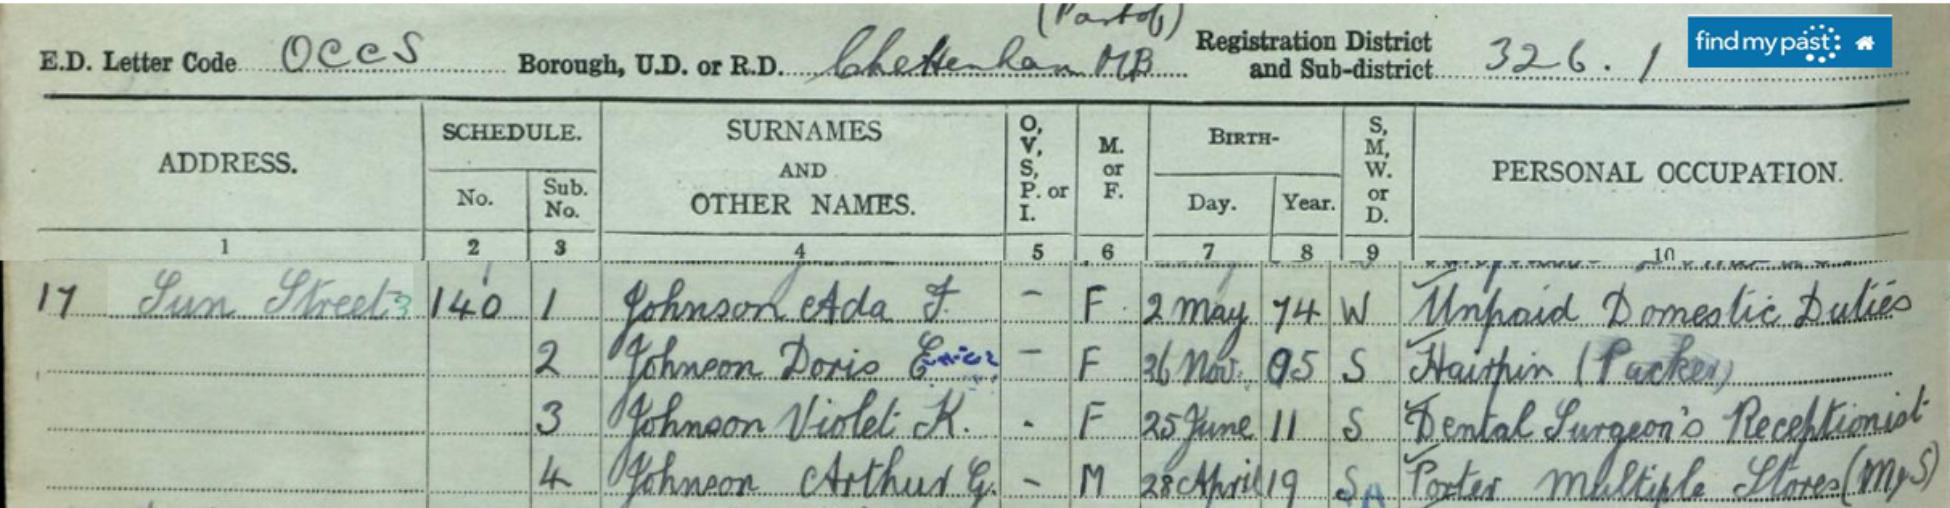 (Part of)
E.D. Letter Code OCCS Borough, U.D. or R.D. Cheltenham MB Registration District and Sub-district 326.1 findmypast
ADDRESS. SCHEDULE. No. Sub. No. SURNAMES AND OTHER NAMES. O, V, S, P. or I. M. or F. BIRTH- Day. Year. S, M, W. or D. PERSONAL OCCUPATION.
1 2 3 4 5 6 7 8 9 10
17 Sun Street 3 140 1 Johnson Ada F. - F. 2 May 74 W Unpaid Domestic Duties
2 Johnson Doris E - F 26 Nov. 05 S Hairpin (Packer)
3 Johnson Violet K. - F 25 June 11 S Dental Surgeon's Receptionist
4 Johnson Arthur G. - M 28 April 19 S Porter Multiple Stores (M&S)